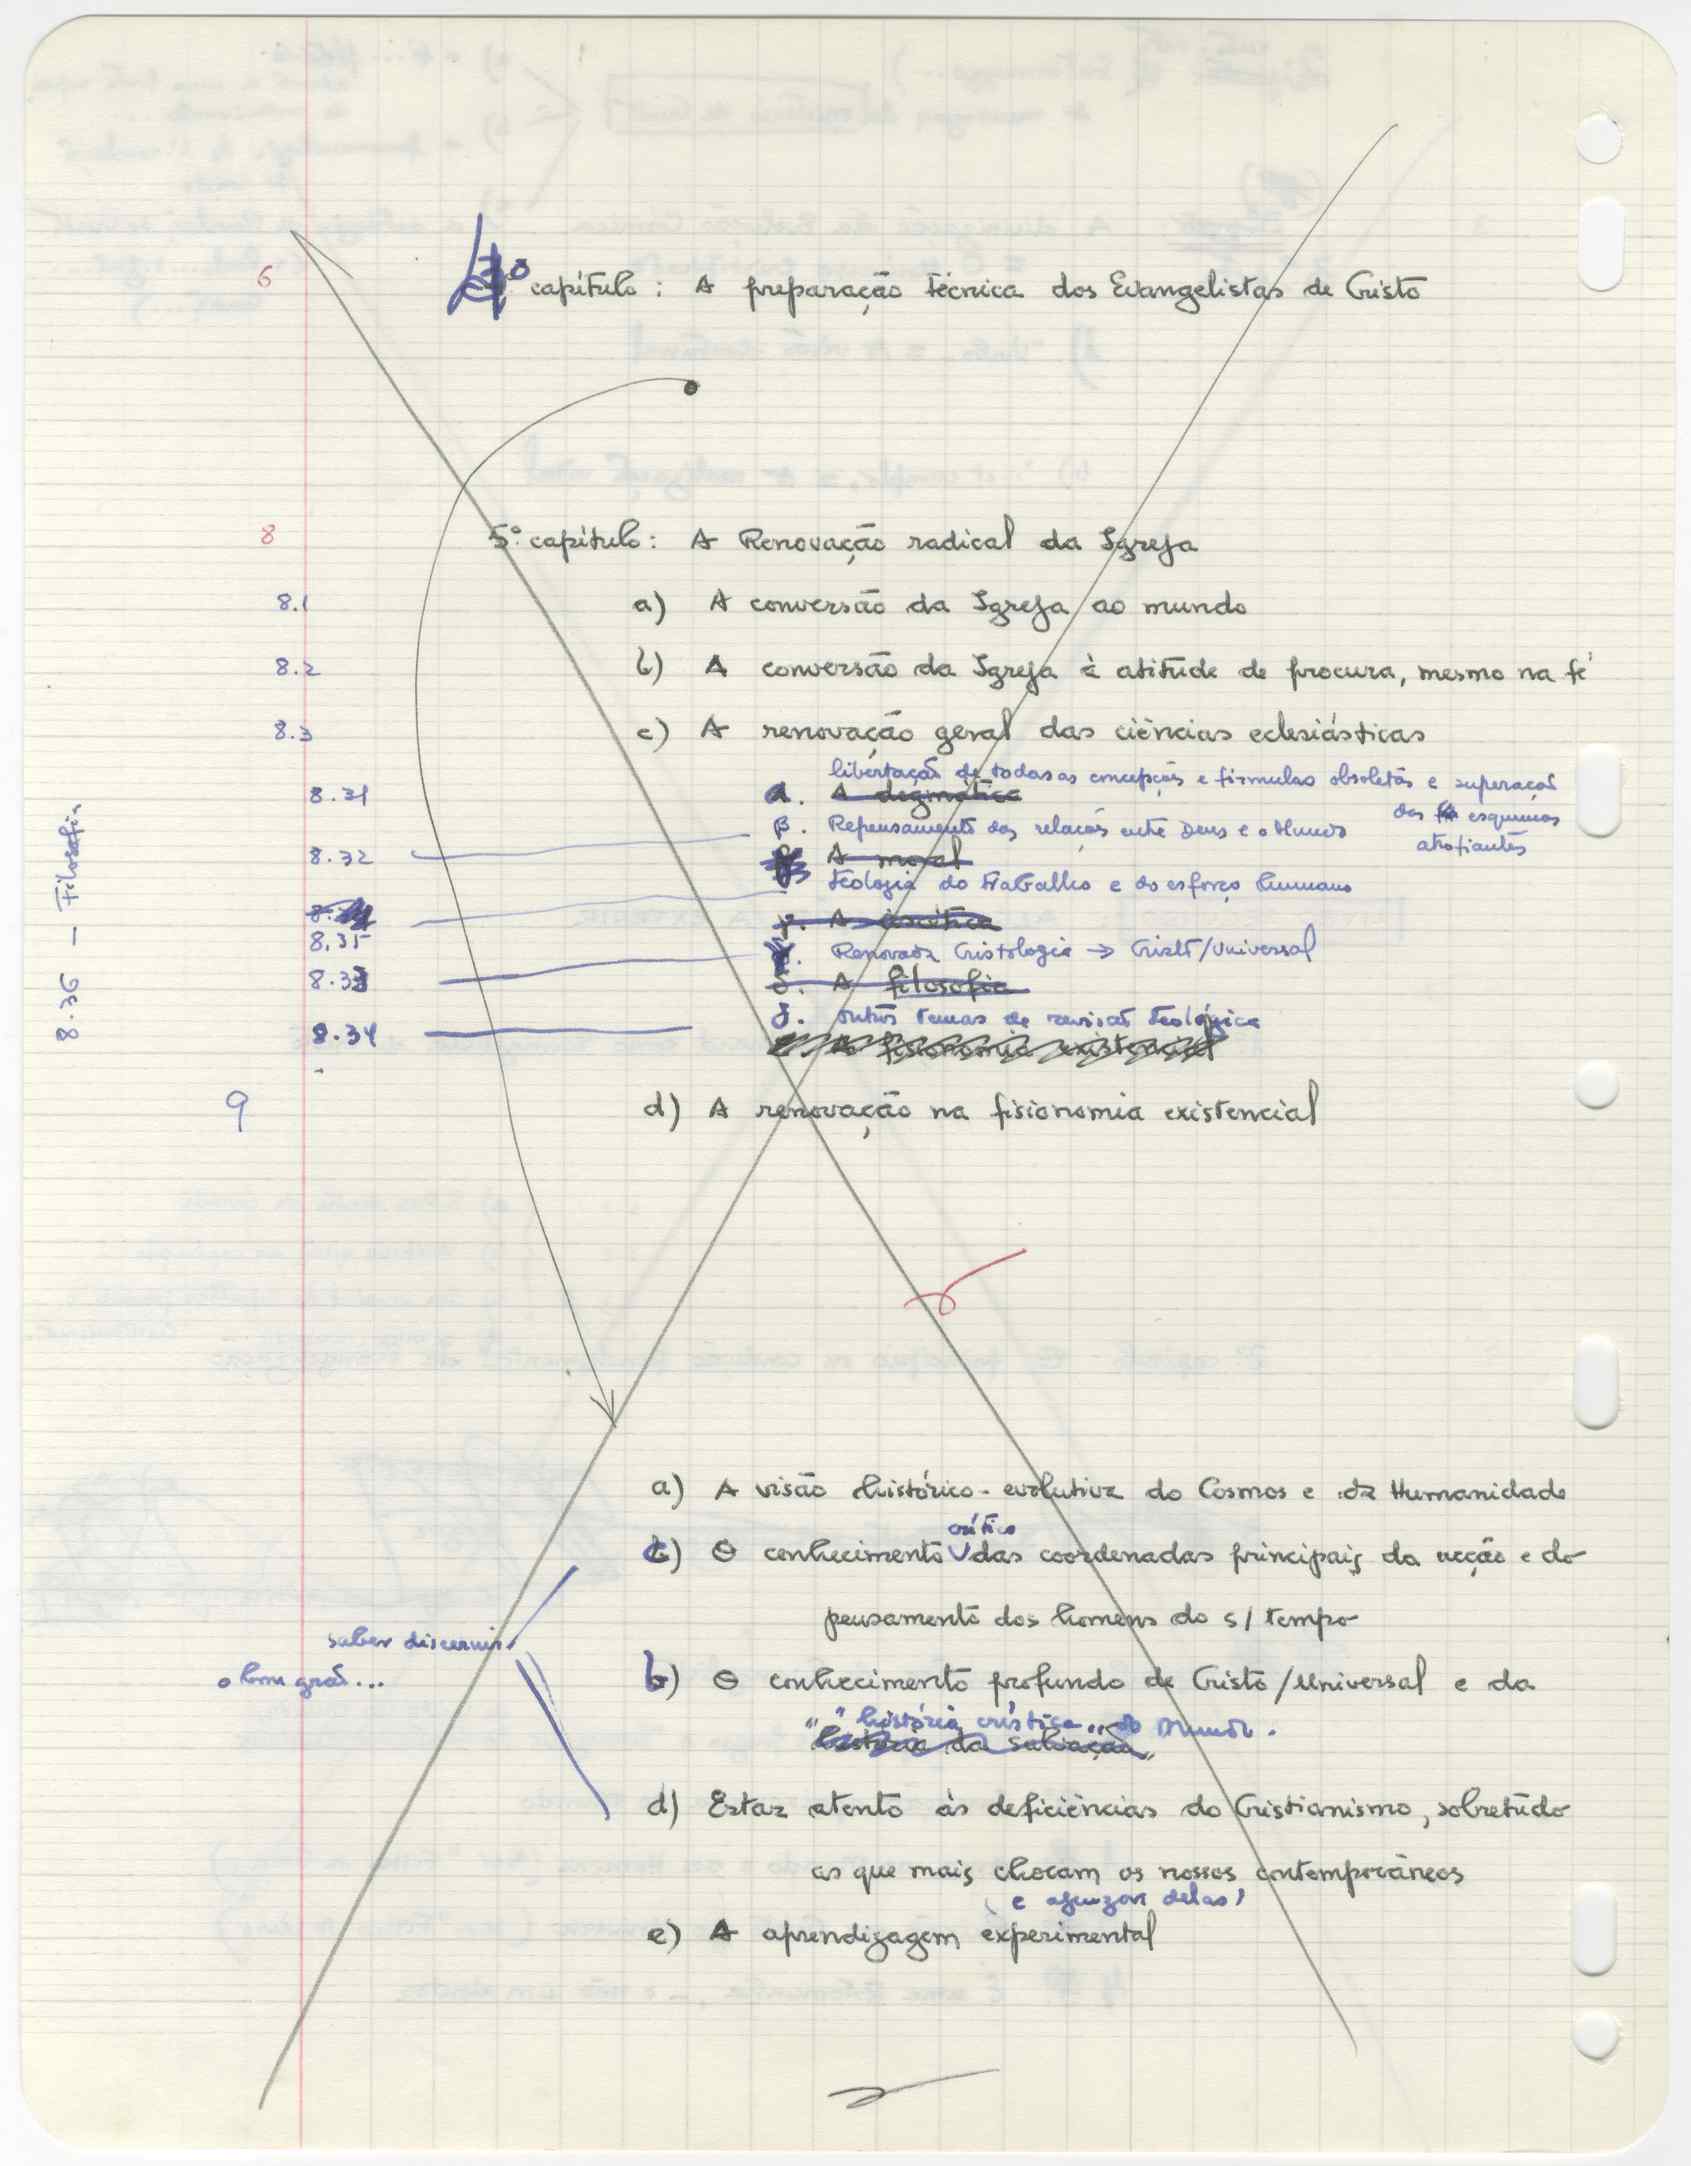 6 º capítulo: A preparação técnica dos Evangelistas de Cristo
8 5º capítulo: A Renovação radical da Igreja
8.1 a) A conversão da Igreja ao mundo
8.2 b) A conversão da Igreja à atitude de procura, mesmo na fé
8.3 c) A renovação geral das ciências eclesiásticas
libertação de todas as concepções e fórmulas obsoletas e superação
8.31 α. A dogmática
dos esquemas
β. Repensamento das relações entre Deus e o Mundo
atrofiantes
8.32 A moral
Teologia do Trabalho e do esforço humano
γ. A ascética
8.35
Renovada Cristologia → Cristo/Universal
8.33 δ. A filosofia
δ. outros temas de revisão teológica
8.34 A fisionomia existencial
8.36 — Filosofia
9 d) A renovação na fisionomia existencial
a) A visão histórico-evolutiva do Cosmos e da Humanidade
crítico
c) O conhecimento V das coordenadas principais da acção e do
pensamento dos homens do s/ tempo
saber discernir
o bom grão...
b) O conhecimento profundo de Cristo/Universal e da
" "história crística" do Mundo.
"história da salvação"
d) Estar atento às deficiências do Cristianismo, sobretudo
as que mais chocam os nossos contemporâneos
e) A aprendizagem experimental